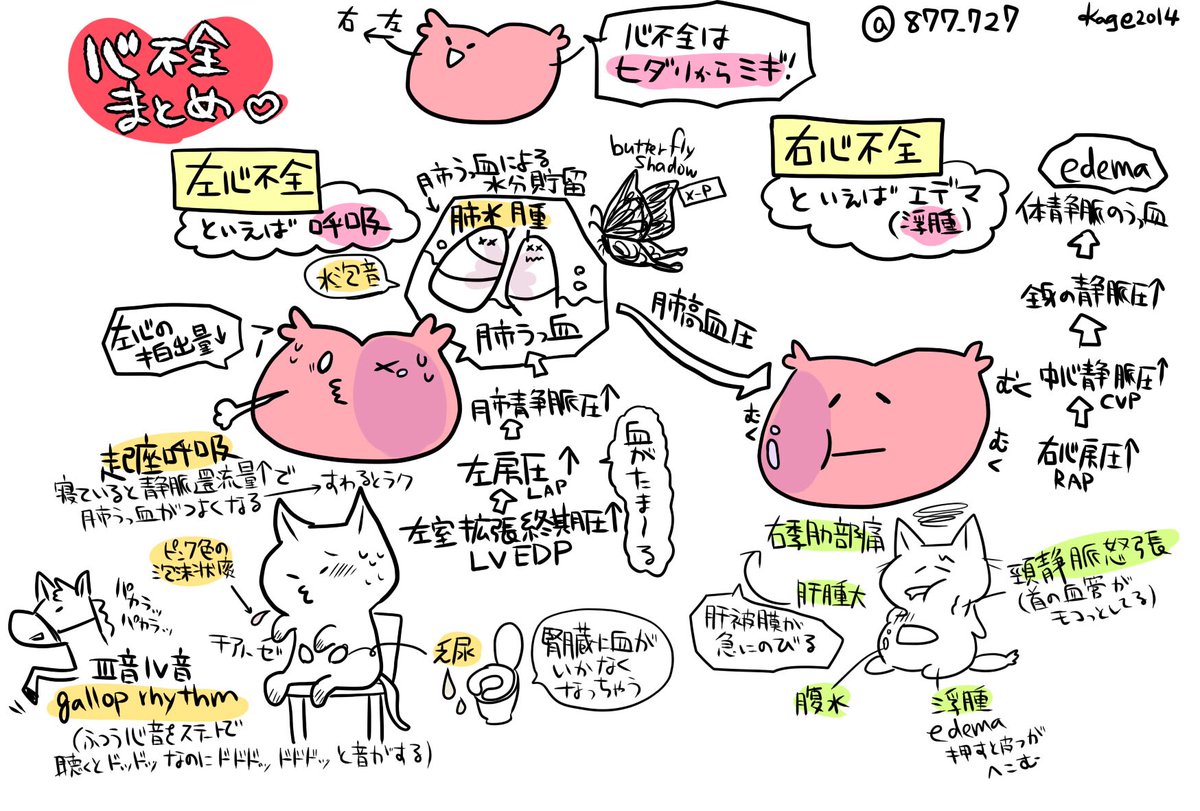 心不全
まとめ♡
右 左
心不全は
ヒダリからミギ!
@877_727
kage2014
左心不全
といえば 呼吸
水泡音
肺うっ血による
水分貯留
肺水腫
肺うっ血
butterfly
shadow
X-P
左心の
拍出量↓
肺静脈圧↑
左房圧↑
LAP
左室拡張終期圧↑
LVEDP
血がたまーる
起座呼吸
寝ていると静脈還流量↑で
肺うっ血がつよくなる
すわるとラク
ピンク色の
泡沫状痰
チアノーゼ
パカラッ
パカラッ
Ⅲ音Ⅳ音
gallop rhythm
(ふつう心音をステートで
聴くとドッドッなのにドドドッ ドドドッと音がする)
乏尿
腎臓に血が
いかなく
なっちゃう
肺高血圧
右心不全
といえばエデマ
(浮腫)
edema
体静脈のうっ血
全身の静脈圧↑
中心静脈圧↑
CVP
右心房圧↑
RAP
むく
むく
むく
右季肋部痛
肝腫大
肝被膜が
急にのびる
頸静脈怒張
(首の血管が
モコっとしてる)
腹水
浮腫
edema
押すと皮っが
へこむ